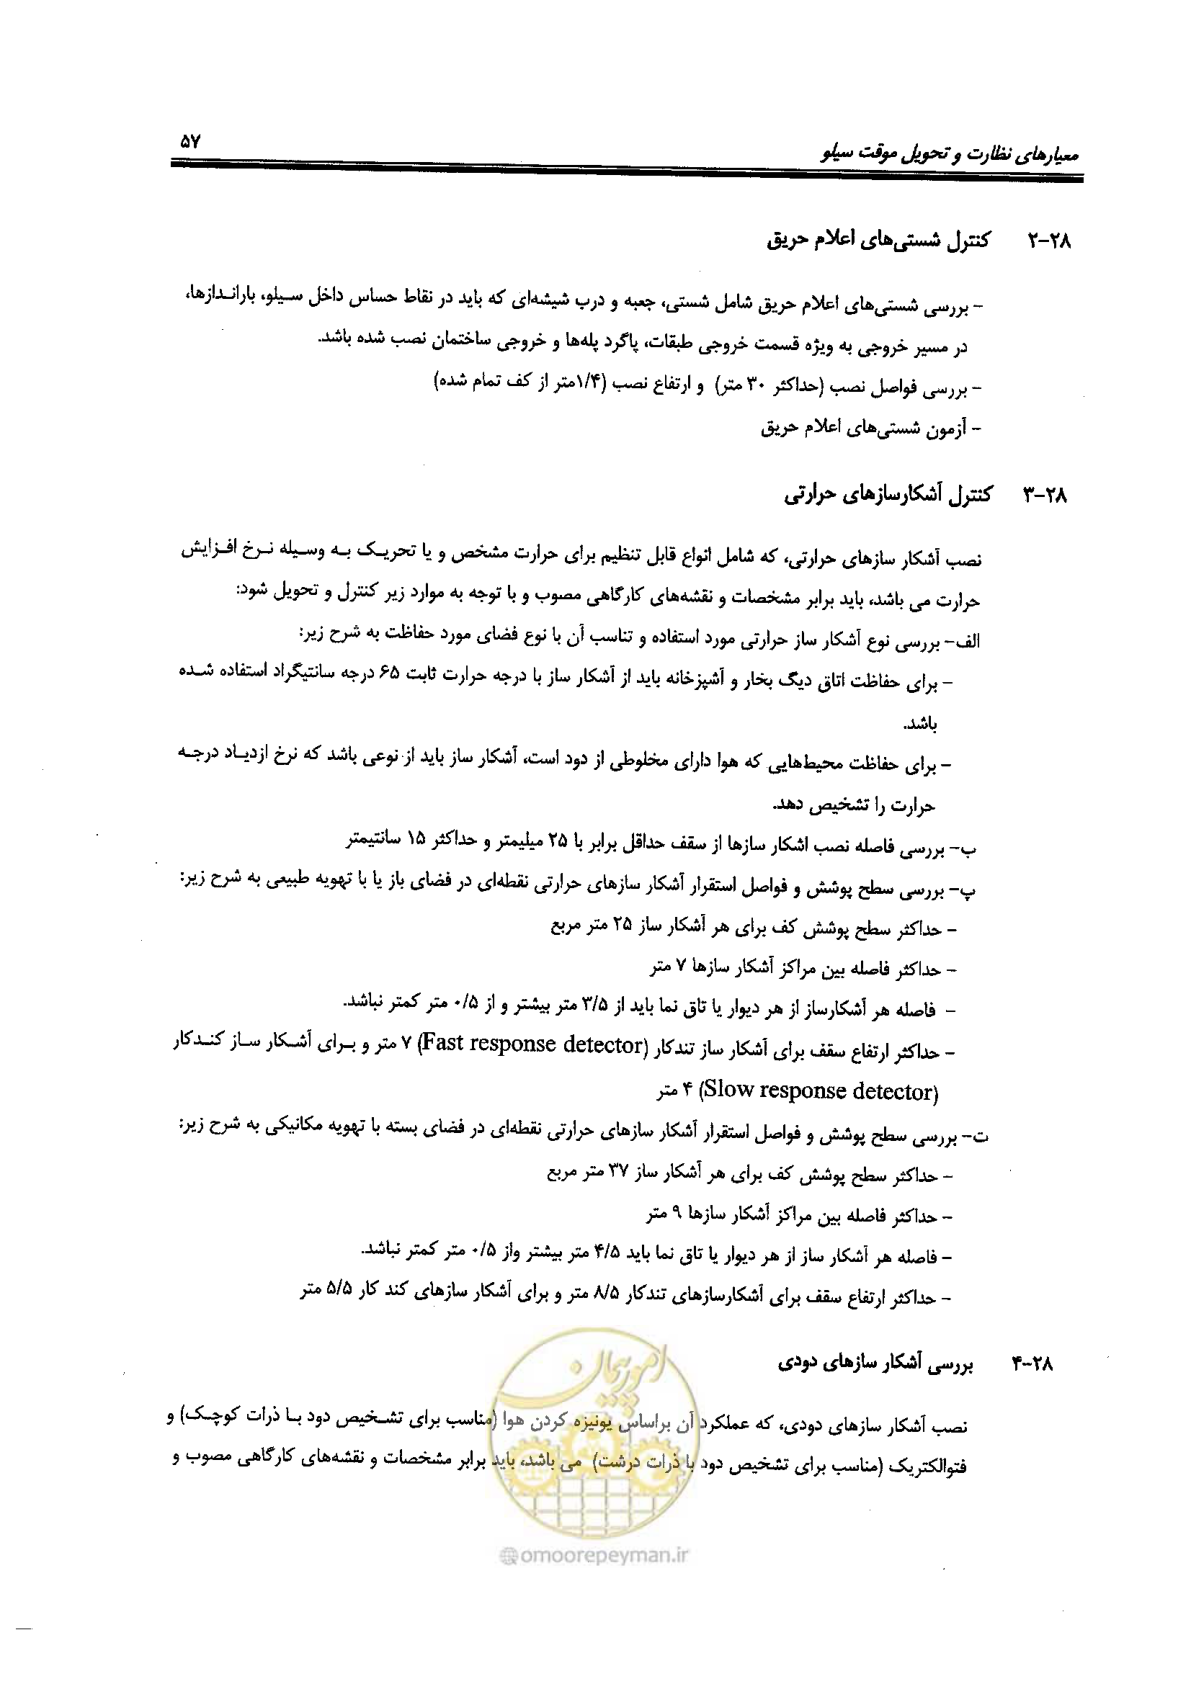 معیارهای نظارت و تحویل موقت سیلو ۵۷
۲-۲۸ کنترل شستی‌های اعلام حریق
- بررسی شستی‌های اعلام حریق شامل شستی، جعبه و درب شیشه‌ای که باید در نقاط حساس داخل سیلو، باراندازها،
در مسیر خروجی به ویژه قسمت خروجی طبقات، پاگرد پله‌ها و خروجی ساختمان نصب شده باشد.
- بررسی فواصل نصب (حداکثر ۳۰ متر) و ارتفاع نصب (۱/۴متر از کف تمام شده)
- آزمون شستی‌های اعلام حریق
۳-۲۸ کنترل آشکارسازهای حرارتی
نصب آشکار سازهای حرارتی، که شامل انواع قابل تنظیم برای حرارت مشخص و یا تحریک به وسیله نرخ افزایش
حرارت می باشد، باید برابر مشخصات و نقشه‌های کارگاهی مصوب و با توجه به موارد زیر کنترل و تحویل شود:
الف- بررسی نوع آشکار ساز حرارتی مورد استفاده و تناسب آن با نوع فضای مورد حفاظت به شرح زیر:
- برای حفاظت اتاق دیگ بخار و آشپزخانه باید از آشکار ساز با درجه حرارت ثابت ۶۵ درجه سانتیگراد استفاده شده
باشد.
- برای حفاظت محیط‌هایی که هوا دارای مخلوطی از دود است، آشکار ساز باید از نوعی باشد که نرخ ازدیاد درجه
حرارت را تشخیص دهد.
ب- بررسی فاصله نصب اشکار سازها از سقف حداقل برابر با ۲۵ میلیمتر و حداکثر ۱۵ سانتیمتر
پ- بررسی سطح پوشش و فواصل استقرار آشکار سازهای حرارتی نقطه‌ای در فضای باز یا با تهویه طبیعی به شرح زیر:
- حداکثر سطح پوشش کف برای هر آشکار ساز ۲۵ متر مربع
- حداکثر فاصله بین مراکز آشکار سازها ۷ متر
- فاصله هر آشکارساز از هر دیوار یا تاق نما باید از ۳/۵ متر بیشتر و از ۰/۵ متر کمتر نباشد.
- حداکثر ارتفاع سقف برای آشکار ساز تندکار (Fast response detector) ۷ متر و برای آشکار ساز کندکار
(Slow response detector) ۴ متر
ت- بررسی سطح پوشش و فواصل استقرار آشکار سازهای حرارتی نقطه‌ای در فضای بسته با تهویه مکانیکی به شرح زیر:
- حداکثر سطح پوشش کف برای هر آشکار ساز ۳۷ متر مربع
- حداکثر فاصله بین مراکز آشکار سازها ۹ متر
- فاصله هر آشکار ساز از هر دیوار یا تاق نما باید ۴/۵ متر بیشتر واز ۰/۵ متر کمتر نباشد.
- حداکثر ارتفاع سقف برای آشکارسازهای تندکار ۸/۵ متر و برای آشکار سازهای کند کار ۵/۵ متر
۴-۲۸ بررسی آشکار سازهای دودی
نصب آشکار سازهای دودی، که عملکرد آن براساس یونیزه کردن هوا (مناسب برای تشخیص دود با ذرات کوچک) و
فتوالکتریک (مناسب برای تشخیص دود با ذرات درشت) می باشد، باید برابر مشخصات و نقشه‌های کارگاهی مصوب و
امور پیمان
omoorepeyman.ir